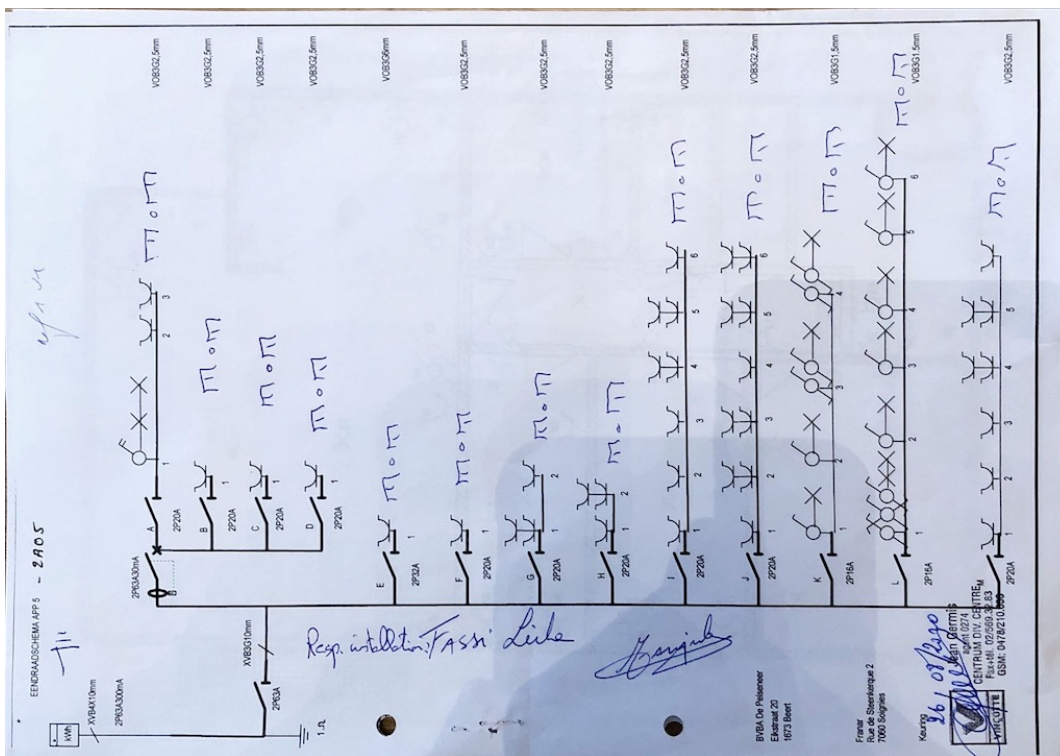 EENDRAADSCHEMA APP 5 - 2A05
kWh
XVB4X10mm
2P63A300mA
2P63A
XVB3G10mm
1 Ω
2P63A30mA
A
2P20A
1
2
3
VOB3G2,5mm
B
2P20A
1
VOB3G2,5mm
C
2P20A
1
VOB3G2,5mm
D
2P20A
1
VOB3G2,5mm
E
2P32A
1
VOB3G6mm
F
2P20A
1
VOB3G2,5mm
G
2P20A
1
2
VOB3G2,5mm
H
2P20A
1
2
VOB3G2,5mm
I
2P20A
1
2
3
4
5
6
VOB3G2,5mm
J
2P20A
1
2
3
4
5
6
VOB3G2,5mm
K
2P16A
1
2
3
4
VOB3G1,5mm
L
2P16A
1
2
3
4
5
6
VOB3G1,5mm
M
2P20A
1
2
3
4
5
VOB3G2,5mm
Resp. installation: FASSI
BVBA De Pelseneer
Eikstraat 20
1673 Beert
Franar
Rue de Steenkerque 2
7060 Soignies
Keuring
26/08/2020
Jean Germis
agent 0274
CENTRUM DIV. CENTRE
Fax+tél. 02/569.32.83
GSM: 0478/210.
VINÇOTTE